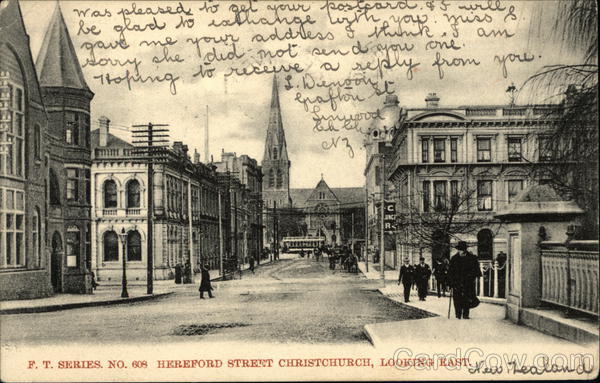 was pleased to get your postcard, & I will
be glad to exchange with you. Miss L
gave me your address I think. I am
sorry she did not send you one.
Hoping to receive a reply from you.
Grafton St
Linwood
Ch Ch
NZ
F. T. SERIES. NO. 608 HEREFORD STREET CHRISTCHURCH, LOOKING EAST.
New Zealand
CardCow.com